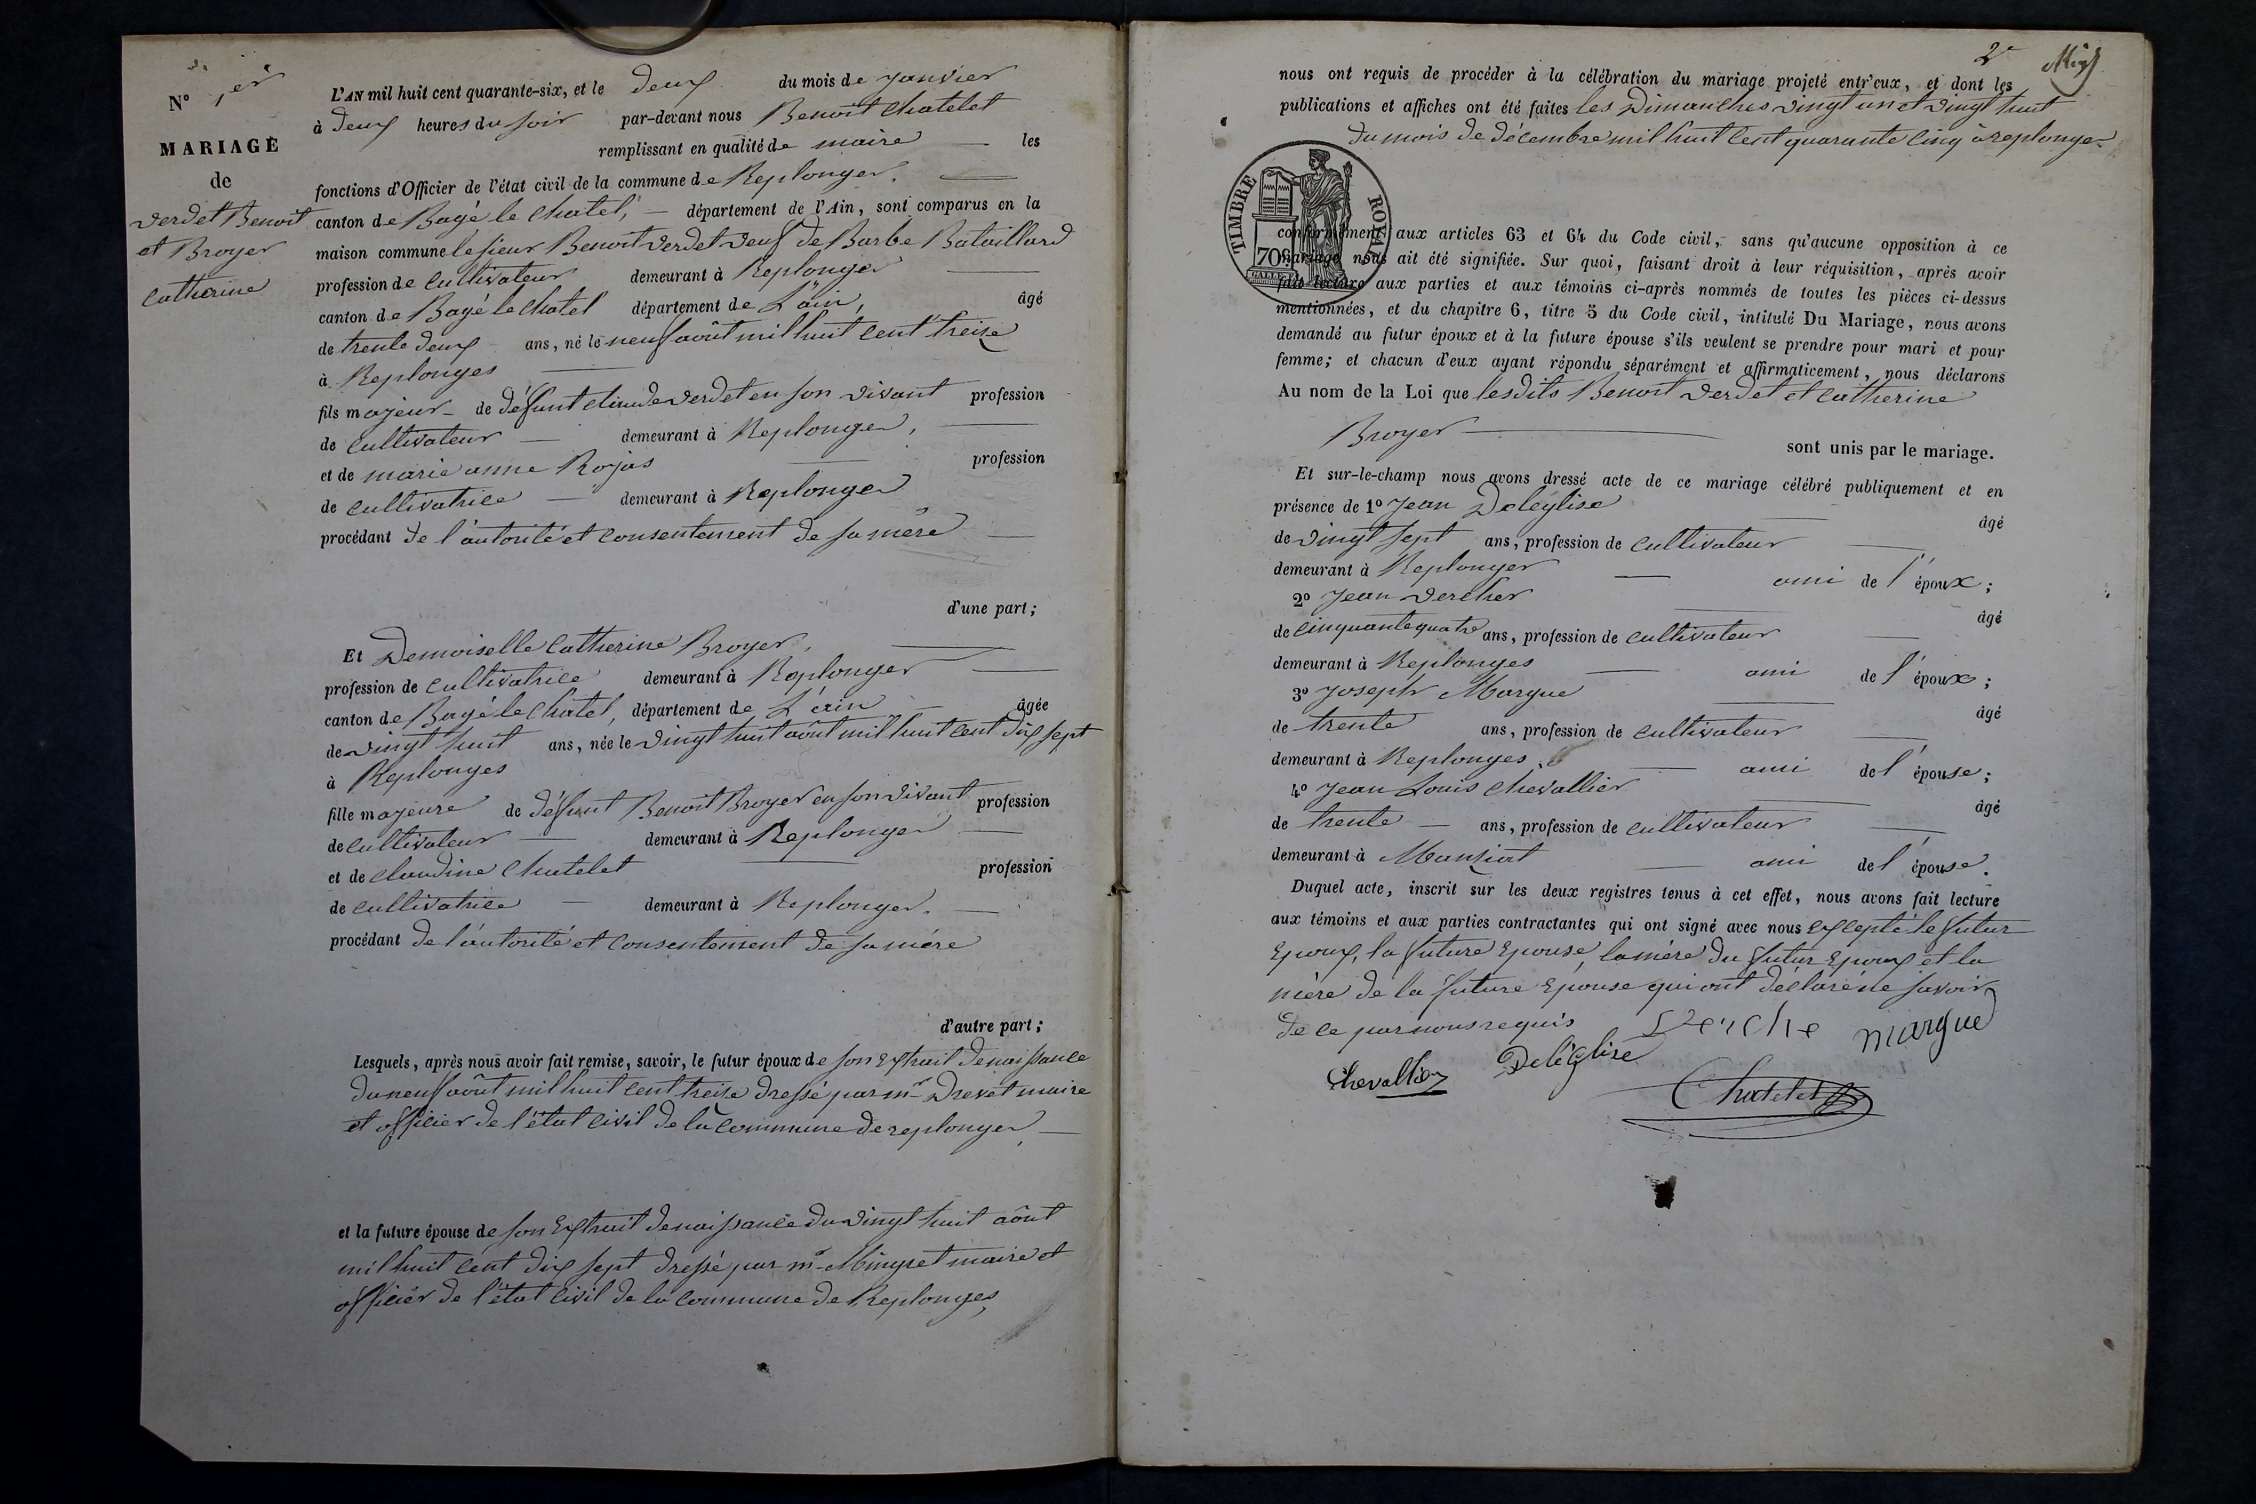 N° 1er
MARIAGE
de
Verdet Benoit
et Broyer
Catherine
L'AN mil huit cent quarante-six, et le deux du mois de janvier
à deux heures du soir par-devant nous Benoit Chatelet
remplissant en qualité de maire les
fonctions d'Officier de l'état civil de la commune de Replonges.
canton de Bagé le Chatel, département de l'Ain, sont comparus en la
maison commune le sieur Benoit Verdet veuf de Barbe Bataillard
profession de cultivateur demeurant à Replonges
canton de Bagé le Chatel département de L'ain, âgé
de trente deux ans, né le neuf août mil huit cent treize
à Replonges
fils majeur de défunt Claude Verdet en son vivant profession
de cultivateur demeurant à Replonges,
et de marie anne Rojas profession
de cultivatrice demeurant à Replonges
procédant de l'autorité et consentement de sa mère
d'une part;
Et Demoiselle Catherine Broyer,
profession de cultivatrice demeurant à Replonges
canton de Bagé le Chatel, département de L'ain âgée
de vingt huit ans, née le vingt huit août mil huit cent dix sept
à Replonges
fille majeure de défunt Benoit Broyer en son vivant profession
de cultivateur demeurant à Replonges
et de Claudine Chatelet profession
de cultivatrice demeurant à Replonges.
procédant de l'autorité et consentement de sa mére
d'autre part;
Lesquels, après nous avoir fait remise, savoir, le futur époux de son Extrait de naissance
du neuf août mil huit cent treize dressé par mr Drevet maire
et officier de l'état civil de la commune de replonges
et la future épouse de son Extrait de naissance du vingt huit août
mil huit cent dix sept dressé par mr Mingret maire et
officier de l'état civil de la commune de Replonges,
2e
nous ont requis de procéder à la célébration du mariage projeté entr'eux, et dont les
publications et affiches ont été faites les Dimanches vingt un et vingt huit
du mois de décembre mil huit cent quarante cinq à replonges.
TIMBRE ROYAL
70c
conformément aux articles 63 et 64 du Code civil, sans qu'aucune opposition à ce
mariage nous ait été signifiée. Sur quoi, faisant droit à leur réquisition, après avoir
fait lecture aux parties et aux témoins ci-après nommés de toutes les pièces ci-dessus
mentionnées, et du chapitre 6, titre 5 du Code civil, intitulé Du Mariage, nous avons
demandé au futur époux et à la future épouse s'ils veulent se prendre pour mari et pour
femme; et chacun d'eux ayant répondu séparément et affirmativement, nous déclarons
Au nom de la Loi que lesdits Benoit Verdet et Catherine
Broyer
sont unis par le mariage.
Et sur-le-champ nous avons dressé acte de ce mariage célébré publiquement et en
présence de 1° Jean Deléglise âgé
de vingt sept ans, profession de cultivateur
demeurant à Replonges ami de l'époux;
2° Jean Vercher âgé
de cinquante quatre ans, profession de cultivateur
demeurant à Replonges ami de l'époux;
3° Joseph Margue âgé
de trente ans, profession de cultivateur
demeurant à Replonges ami de l'épouse;
4° Jean Louis Chevallier âgé
de trente ans, profession de cultivateur
demeurant à Manziat ami de l'épouse.
Duquel acte, inscrit sur les deux registres tenus à cet effet, nous avons fait lecture
aux témoins et aux parties contractantes qui ont signé avec nous excepté le futur
Epoux, la future Epouse, la mére du futur Epoux et la
mère de la future Epouse qui ont déclaré ne savoir
de ce par nous requis
Verche margue
Chevallier Deléglise
Chatelet